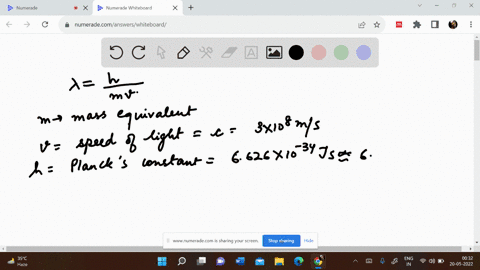 Numerade
Numerade Whiteboard
numerade.com/answers/whiteboard/
λ = h / mv
m → mass equivalent
v = speed of light = c = 3×10⁸ m/s
h = Planck's constant = 6.626×10⁻³⁴ Js ≈ 6.
www.numerade.com is sharing your screen.
Stop sharing
Hide
35°C
Haze
ENG
IN
00:32
20-05-2022